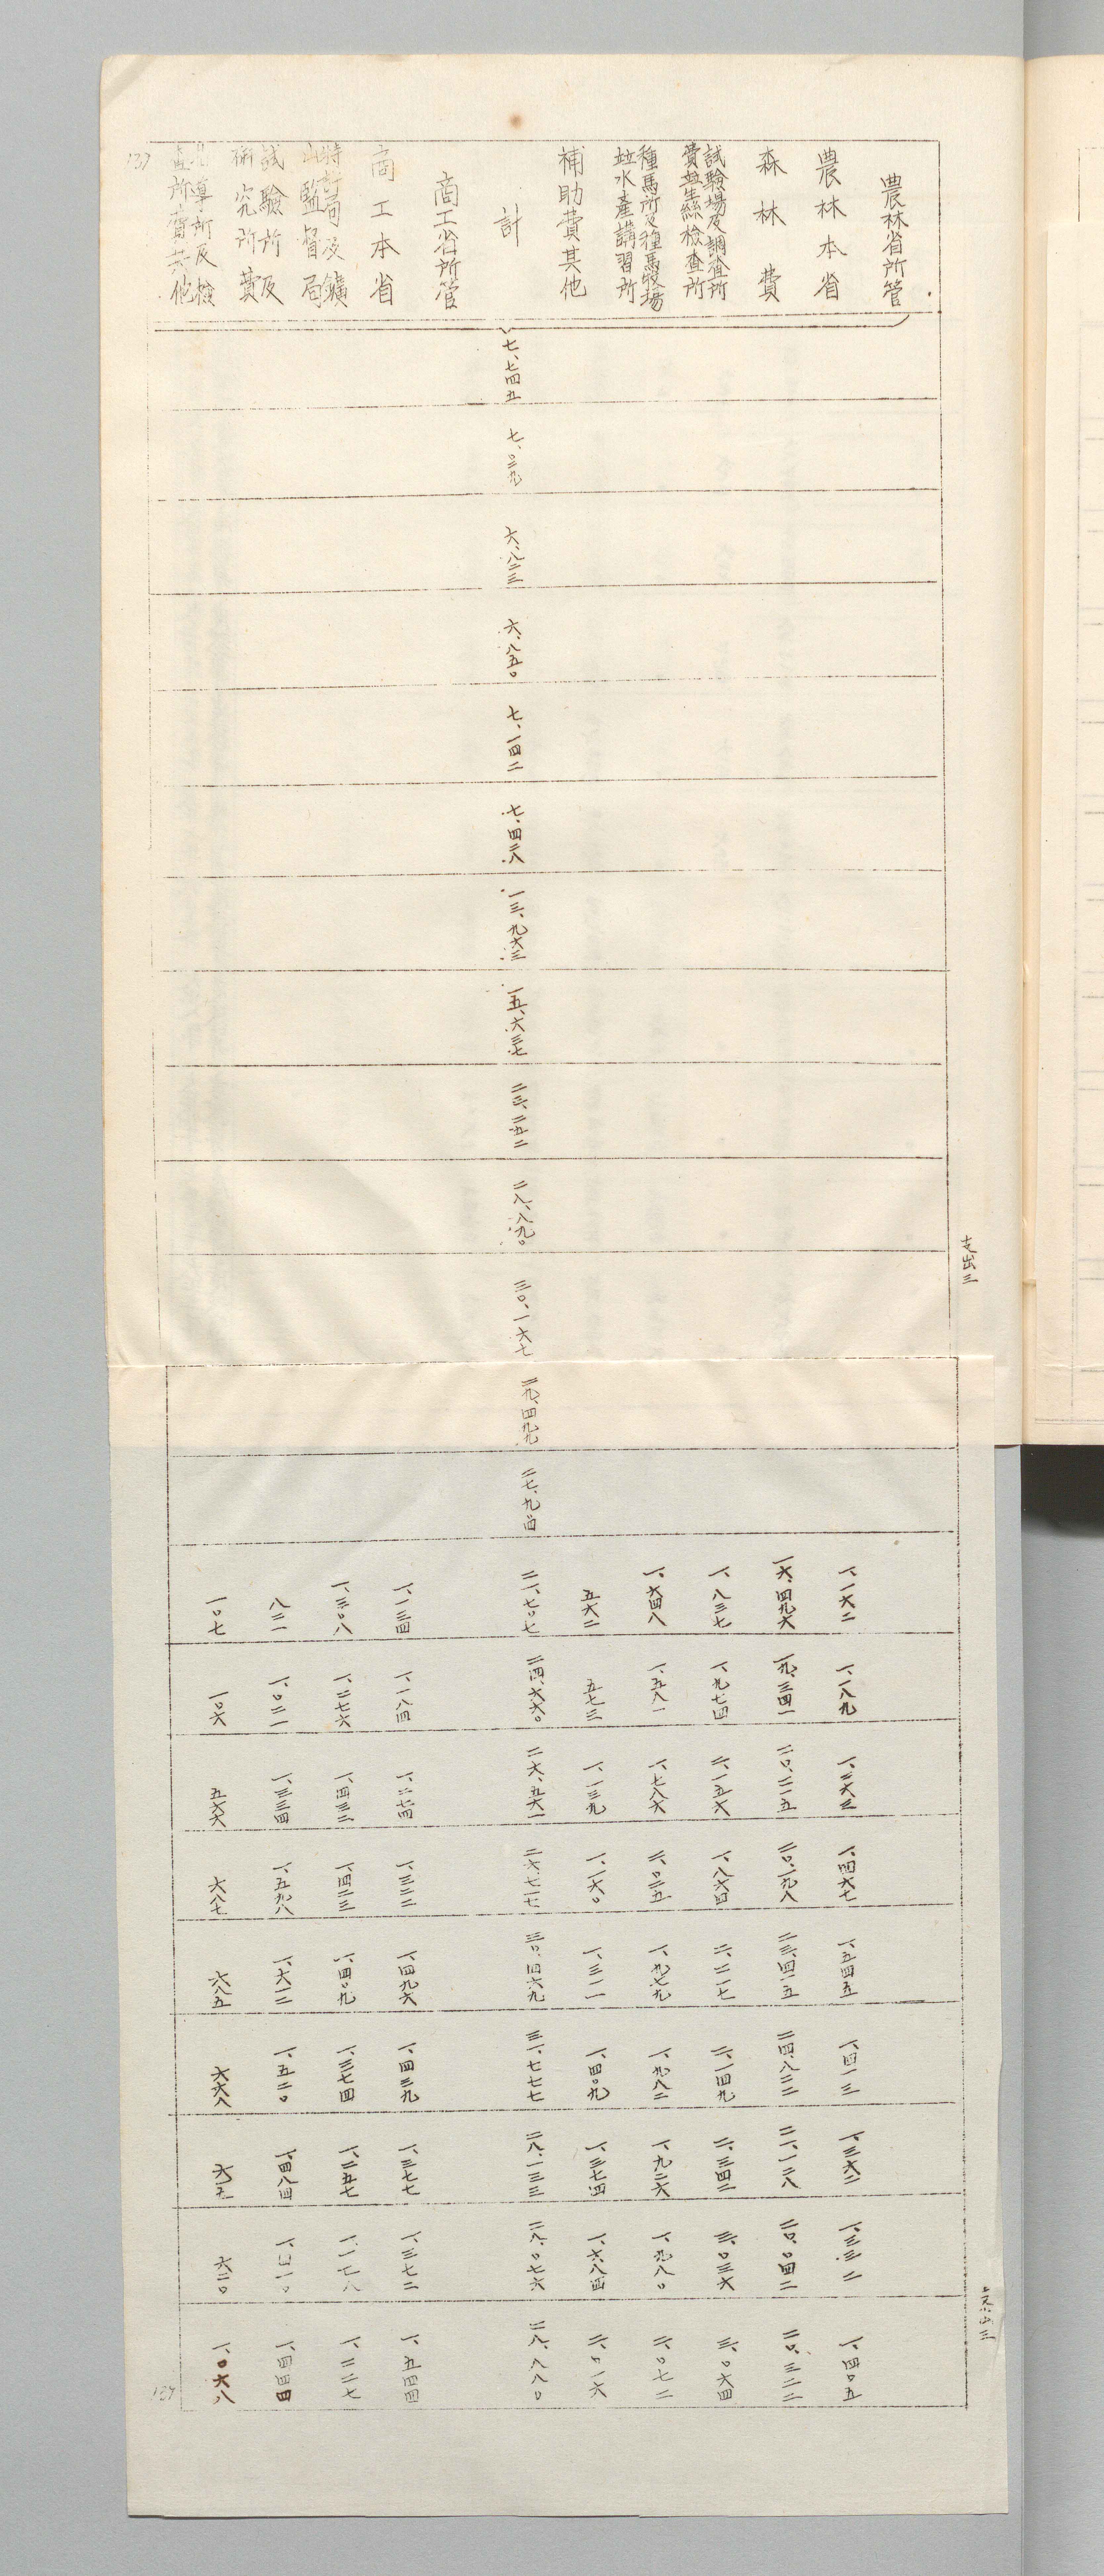 農林省所管
農林本省
森林費
試驗場及調査所
費並生絲檢査所
種馬所及種馬牧場
並水產講習所
補助費其他
計
商工省所管
商工本省
特許局及鑛
山監督局
試驗所及
硏究所費
導所及檢
査所費其他
137
七、七四五
七、〇二九
六、八二三
六、八五〇
七、一四二
七、四二八
一三、九六三
一五、六三七
二三、二五二
二八、八九〇
支出三
三〇、一六七
二九、四九九
二七、九一四
一、一六二
一六、四九六
一、八三七
一、六四八
五六二
二一、七〇七
一、一三四
一、三〇八
八二一
一〇七
一、一八九
一九、三四一
一、九七四
一、五八一
五七三
二四、六六〇
一、一八四
一、二七六
一、〇二一
一〇六
一、二六三
二〇、二一五
二、一五六
一、七八六
一、一三九
二六、五六一
一、二七四
一、四三二
一、三三四
五六六
一、四六七
二〇、一九八
一、八六四
二、〇二五
一、一六〇
二六、七一七
一、三二二
一、四二三
一、五九八
六八七
一、五四五
二三、四一五
二、二一七
一、九七九
一、三一一
三〇、四六九
一、四九六
一、四〇九
一、六一二
六八五
一、四一三
二四、八二二
二、一四九
一、九八二
一、四〇九
三一、七七七
一、四三九
一、三七四
一、五二〇
六六八
一、三六二
二一、一二八
二、三四二
一、九二六
一、三七四
二八、一三三
一、三七七
一、二五七
一、四八四
六一五
一、三三二
二〇、〇四二
三、〇三六
一、九八〇
一、六八四
二八、〇七六
一、三七二
一、一七八
一、四一〇
六二〇
一、四〇五
二〇、三二二
三、〇六四
二、〇七二
二、〇一六
二八、八八〇
一、五四四
一、二二七
一、四四四
一、〇六八
137